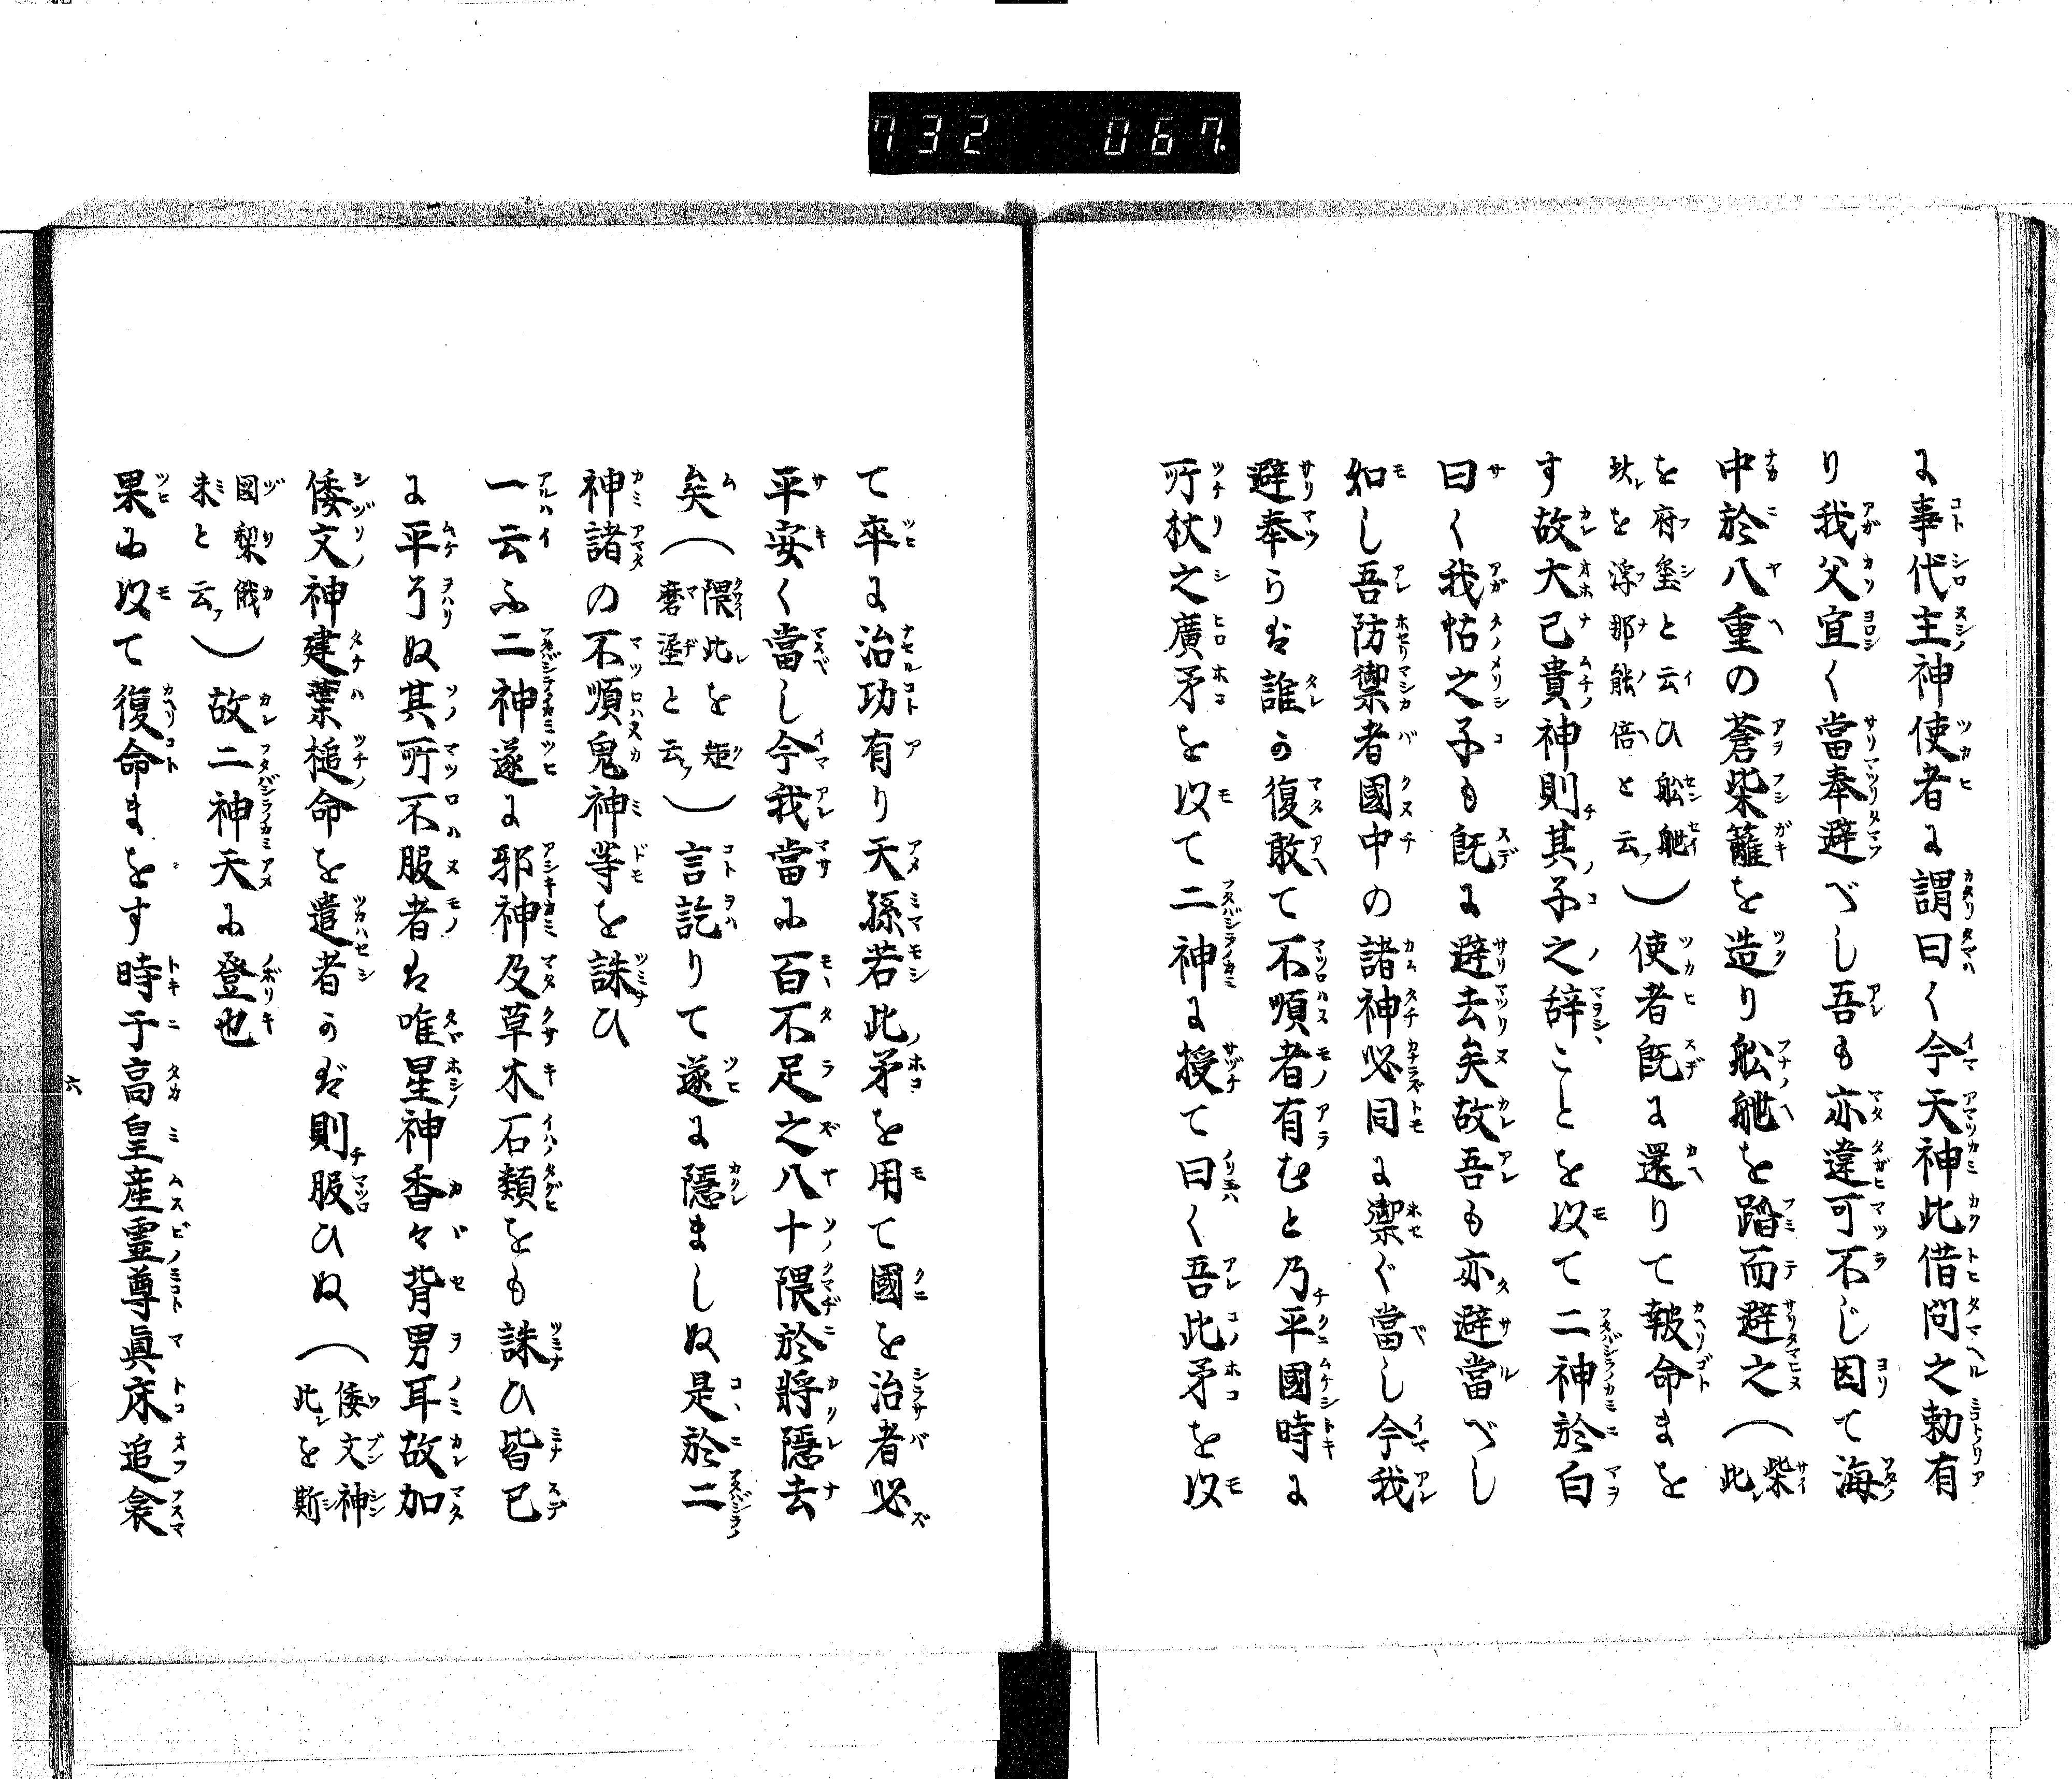 732 067.
に事代主神使者に謂曰く今天神此借問之勅有
り我父宜く當奉避べし吾も亦違可不じ因て海
中於八重の蒼柴籬を造り舩枻を蹈而避之（柴此
を府璽と云ひ舩枻
を浮那能倍と云）使者既に還りて報命まを
す故大己貴神則其子之辞ことを以て二神於白
曰く我怙之子も既に避去矣故吾も亦避當べし
如し吾防禦者國中の諸神必同に禦ぐ當し今我
避奉らば誰か復敢て不順者有むと乃平國時に
所杖之廣矛を以て二神に授て曰く吾此矛を以
て卒に治功有り天孫若此矛を用て國を治者必
平安く當し今我當に百不足之八十隈於將隱去
矣（隈此を矩磨泥と云）言訖りて遂に隱ましぬ是於二
神諸の不順鬼神等を誅ひ
一云ふ二神遂に邪神及草木石類をも誅ひ皆已
に平了ぬ其所不服者は唯星神香々背男耳故加
倭文神建葉槌命を遣者かば則服ひぬ（倭文神此を斯
圖梨俄未と云）故二神天に登也
果に以て復命まをす時于高皇産霊尊眞床追衾
六